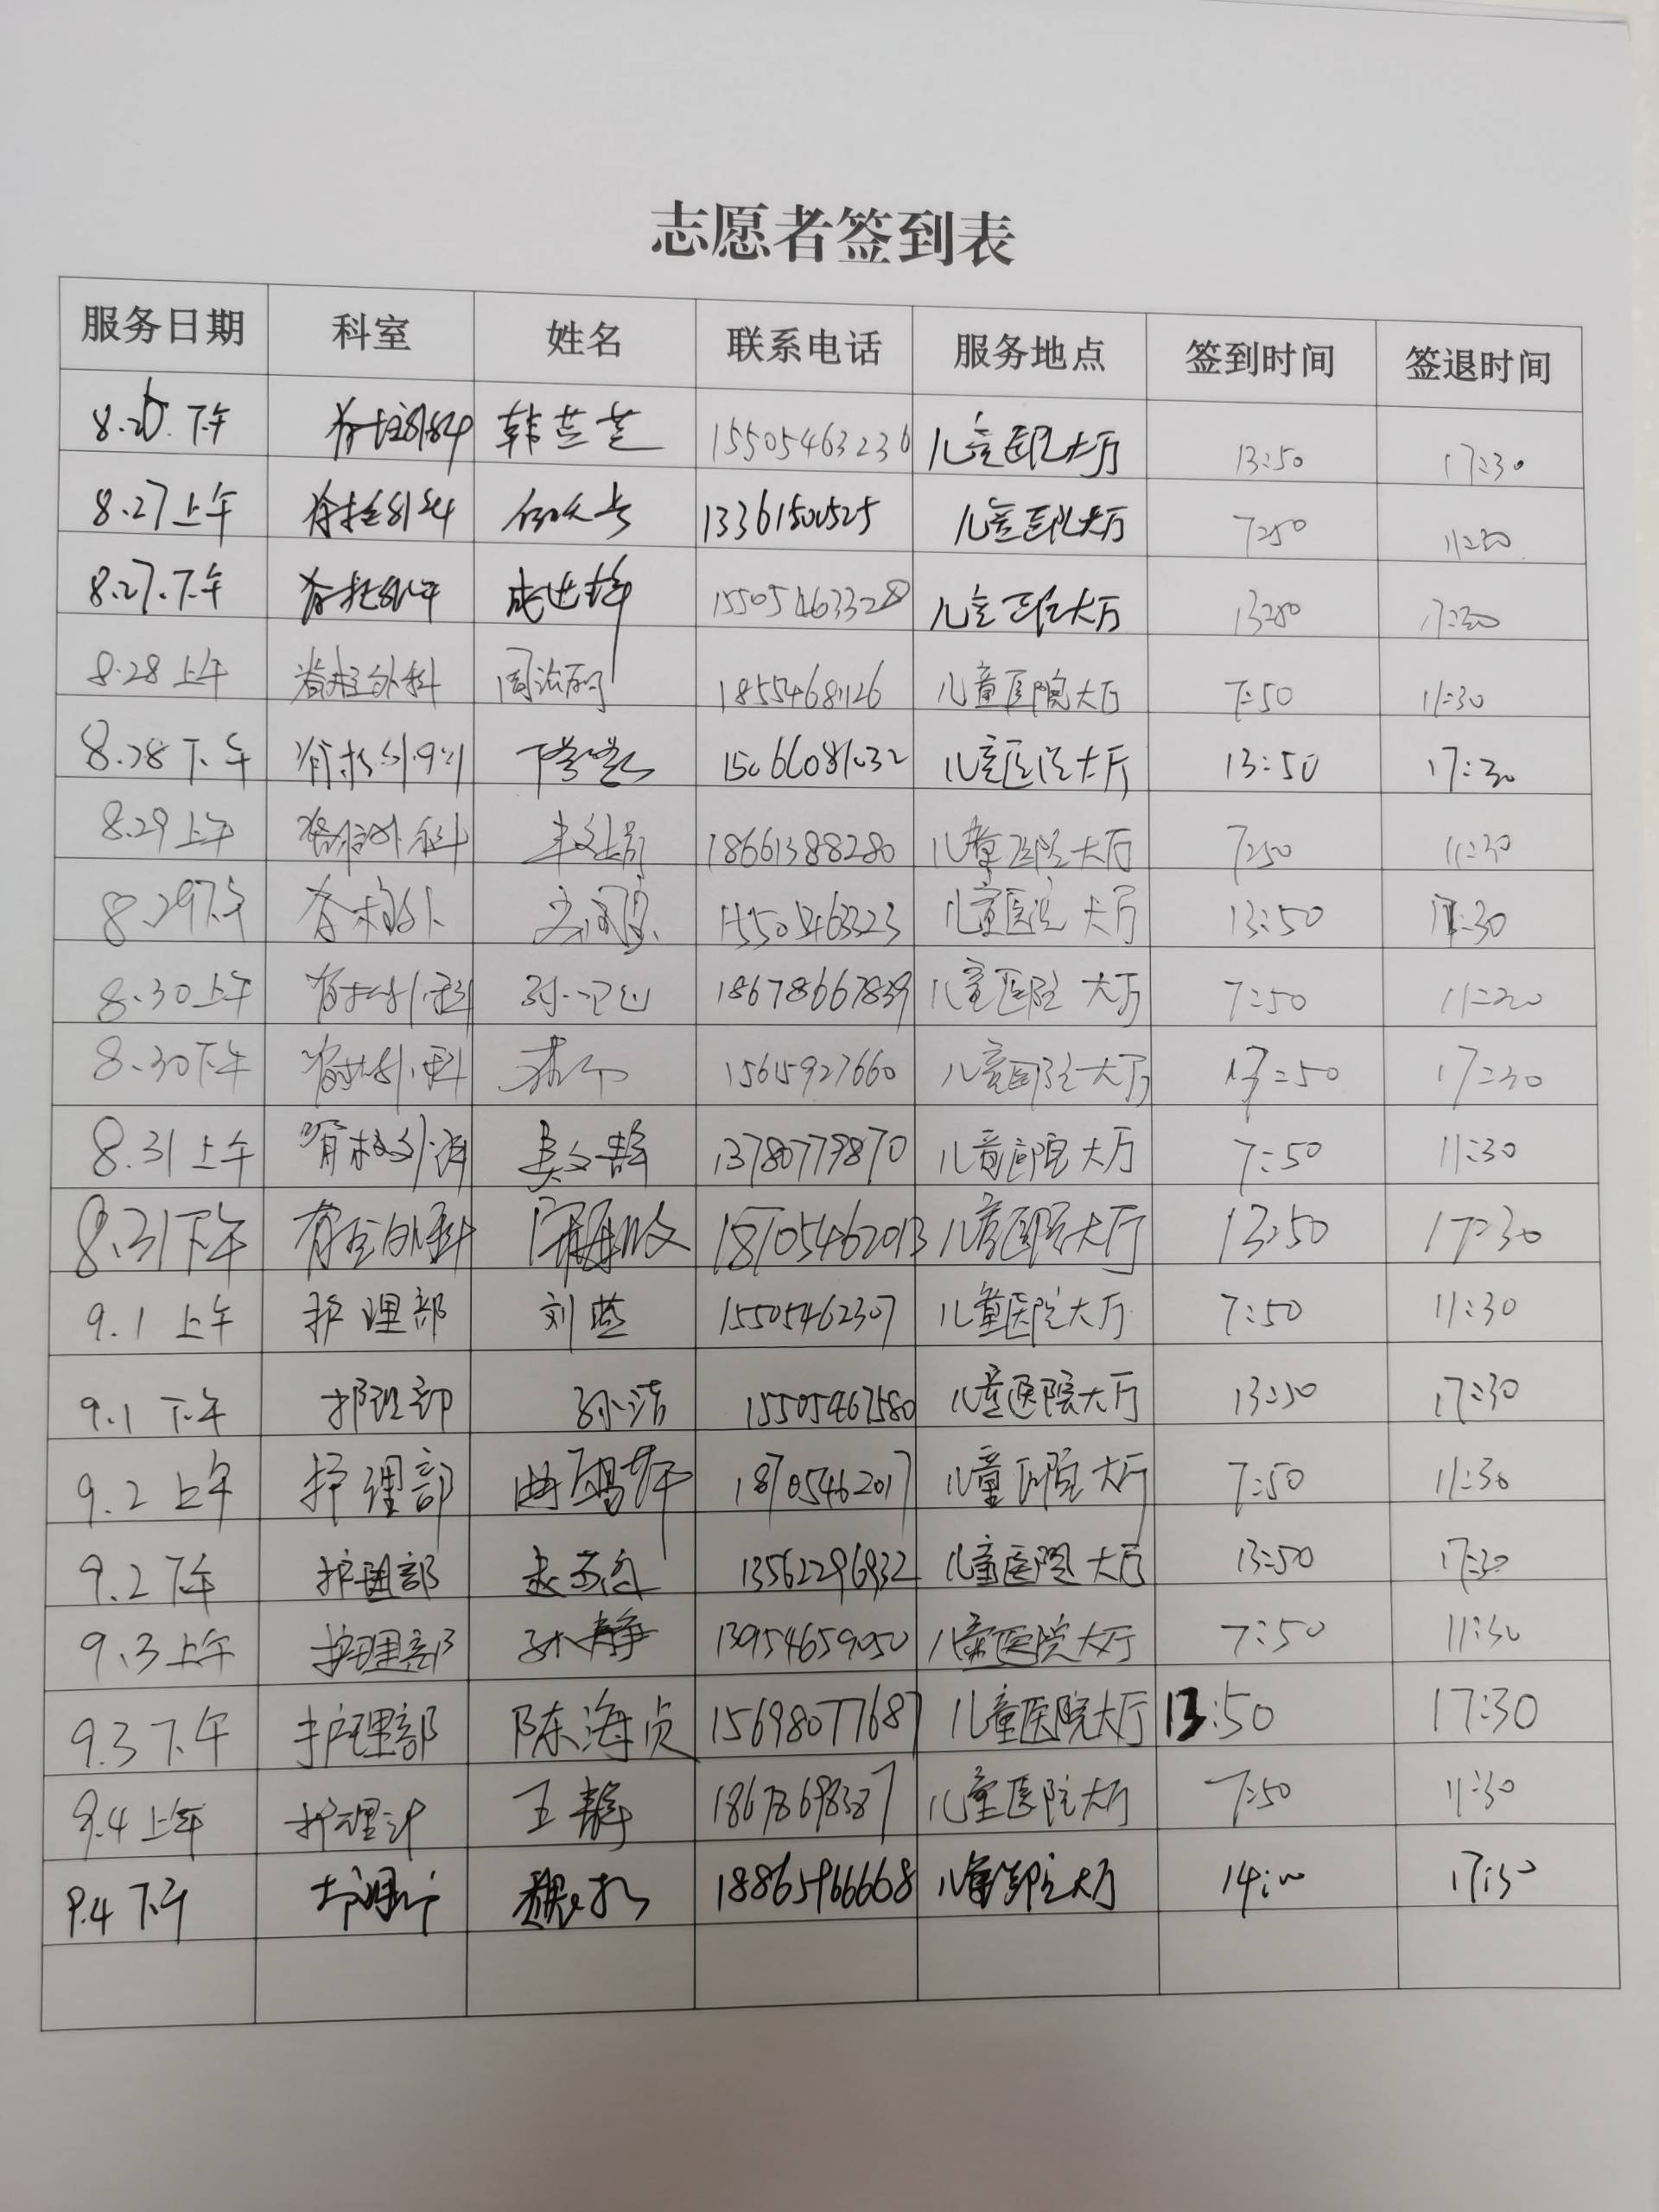 志愿者签到表
服务日期 科室 姓名 联系电话 服务地点 签到时间 签退时间
8.26.下午 脊柱外科 韩芸芸 15505463236 儿童医院大厅 13:50 17:30
8.27上午 脊柱外科 13361500525 儿童医院大厅 7:50 11:30
8.27.下午 脊柱外科 15505463328 儿童医院大厅 13:50 17:30
8.28上午 脊柱外科 儿童医院大厅 7:50 11:30
8.28下午 脊柱外科 儿童医院大厅 13:50 17:30
8.29上午 脊柱外科 18661388280 儿童医院大厅 7:50 11:30
8.29下午 脊柱外 15505463323 儿童医院大厅 13:50 17:30
8.30上午 脊柱外科 18678667839 儿童医院大厅 7:50 11:30
8.30下午 脊柱外科 15615927660 儿童医院大厅 13:50 17:30
8.31上午 脊柱外科 13780779870 儿童医院大厅 7:50 11:30
8.31下午 脊柱外科 18705462013 儿童医院大厅 13:50 17:30
9.1上午 护理部 刘蓝 15505462307 儿童医院大厅 7:50 11:30
9.1下午 护理部 孙洁 15505467580 儿童医院大厅 13:50 17:30
9.2上午 护理部 18705462017 儿童医院大厅 7:50 11:30
9.2下午 护理部 13562296932 儿童医院大厅 13:50 17:30
9.3上午 护理部 孙静 13954659050 儿童医院大厅 7:50 11:30
9.3下午 护理部 陈海贞 15698077687 儿童医院大厅 13:50 17:30
9.4上午 护理部 王静 18678698387 儿童医院大厅 7:50 11:30
9.4下午 护理部 18865966668 儿童医院大厅 14:00 17:30